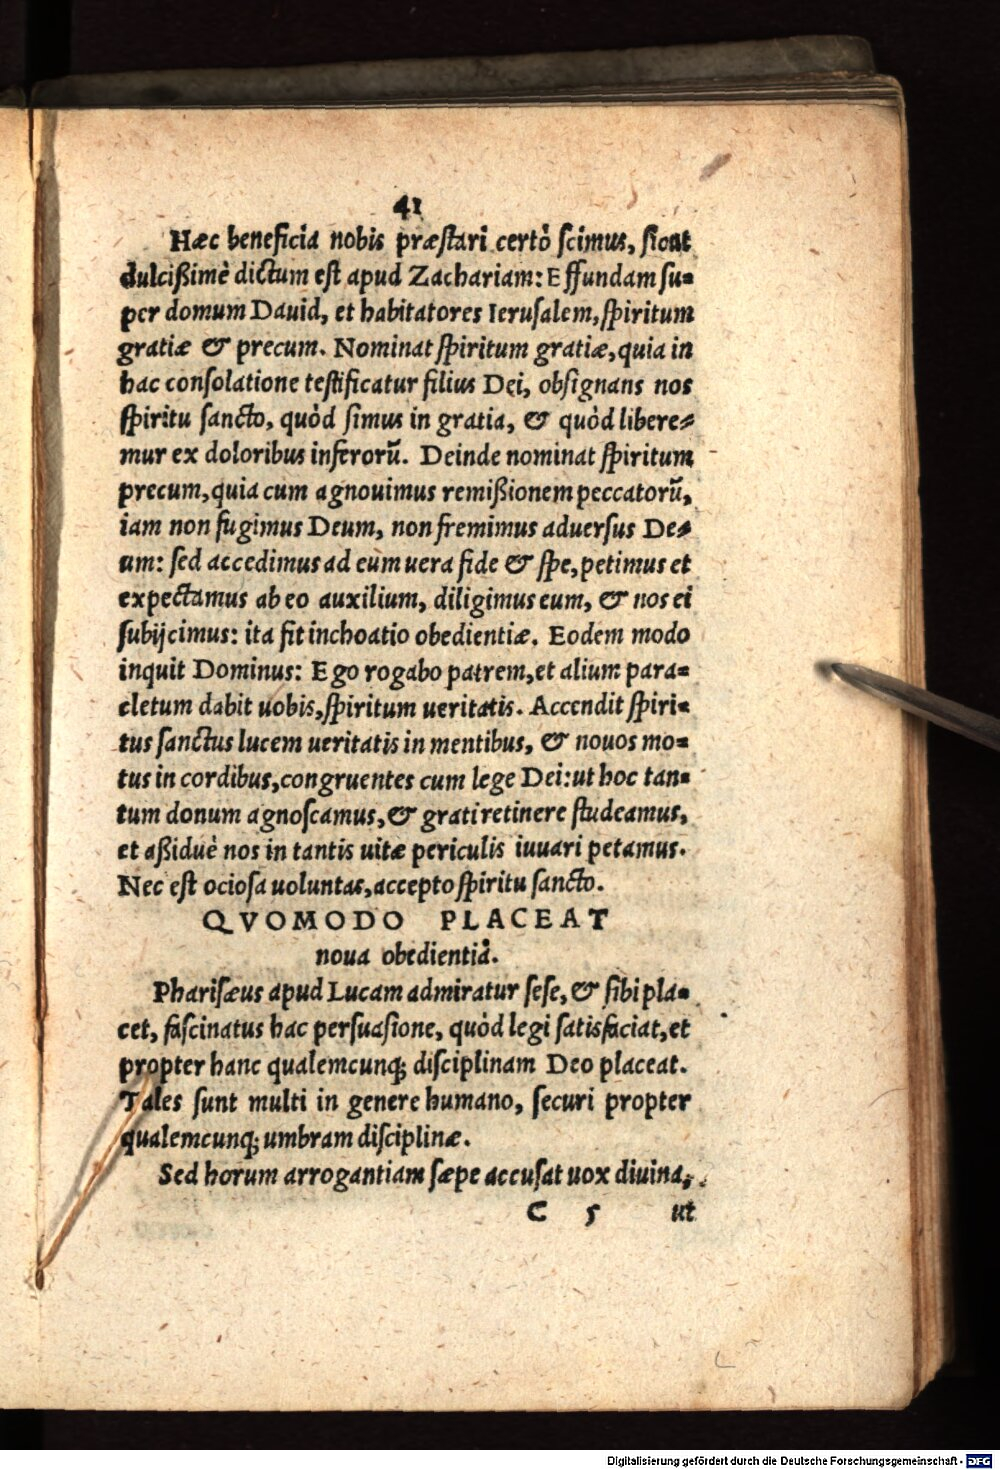 41
Hæc beneficia nobis præstari certò scimus, sicut
dulcißimè dictum est apud Zachariam: Effundam su=
per domum Dauid, et habitatores Ierusalem, spiritum
gratiæ & precum. Nominat spiritum gratiæ, quia in
hac consolatione testificatur filius Dei, obsignans nos
spiritu sancto, quòd simus in gratia, & quòd libere=
mur ex doloribus inferorũ. Deinde nominat spiritum
precum, quia cum agnouimus remißionem peccatorũ,
iam non fugimus Deum, non fremimus aduersus De=
um: sed accedimus ad eum uera fide & spe, petimus et
expectamus ab eo auxilium, diligimus eum, & nos ei
subijcimus: ita fit inchoatio obedientiæ. Eodem modo
inquit Dominus: Ego rogabo patrem, et alium para=
cletum dabit uobis, spiritum ueritatis. Accendit spiri=
tus sanctus lucem ueritatis in mentibus, & nouos mo=
tus in cordibus, congruentes cum lege Dei: ut hoc tan=
tum donum agnoscamus, & grati retinere studeamus,
et aßiduè nos in tantis uitæ periculis iuuari petamus.
Nec est ociosa uoluntas, accepto spiritu sancto.
QVOMODO PLACEAT
noua obedientia.
Pharisæus apud Lucam admiratur sese, & sibi pla=
cet, fascinatus hac persuasione, quòd legi satisfaciat, et
propter hanc qualemcunq; disciplinam Deo placeat.
Tales sunt multi in genere humano, securi propter
qualemcunq; umbram disciplinæ.
Sed horum arrogantiam sæpe accusat uox diuina,
C 5 ut
Digitalisierung gefördert durch die Deutsche Forschungsgemeinschaft - DFG